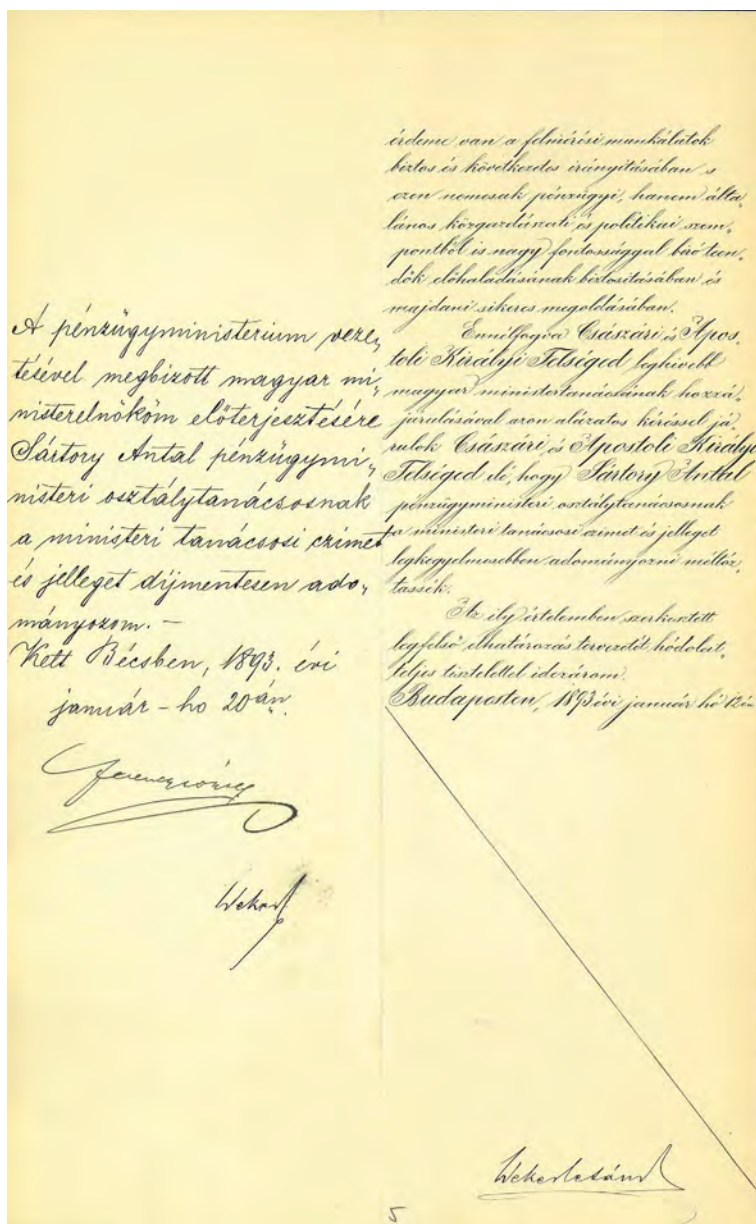 A pénzügyministerium veze„
tésével megbizott magyar mi„
nisterelnököm előterjesztésére
Sártory Antal pénzügymi„
nisteri osztálytanácsosnak
a ministeri tanácsosi czimet
és jelleget díjmentesen ado„
mányozom. –
Kelt Bécsben, 1893. évi
január – ho 20án.
Ferencz József
Wekerle
érdeme van a felmérési munkálatok
biztos és következetes irányitásában s
ezen nemcsak pénzügyi, hanem álta„
lános közgazdászati és politikai szem„
pontból is nagy fontossággal biró teen„
dők előhaladásának biztositásában és
majdani sikeres megoldásában.
Ennélfogva Császári és Apos„
toli Királyi Felséged leghivebb
magyar ministertanácsának hozzá„
járulásával azon alázatos kéréssel já„
rulok Császári és Apostoli Királyi
Felséged elé, hogy Sártory Antal
pénzügyministeri osztálytanácsosnak
a ministeri tanácsosi czimet és jelleget
legkegyelmesebben adományozni méltóz„
tassék.
Az ily értelemben szerkesztett
legfelső elhatározás tervezetét hódolat„
teljes tisztelettel idezárom.
Budapesten, 1893 évi január hó 12én
Wekerle Sánd
5